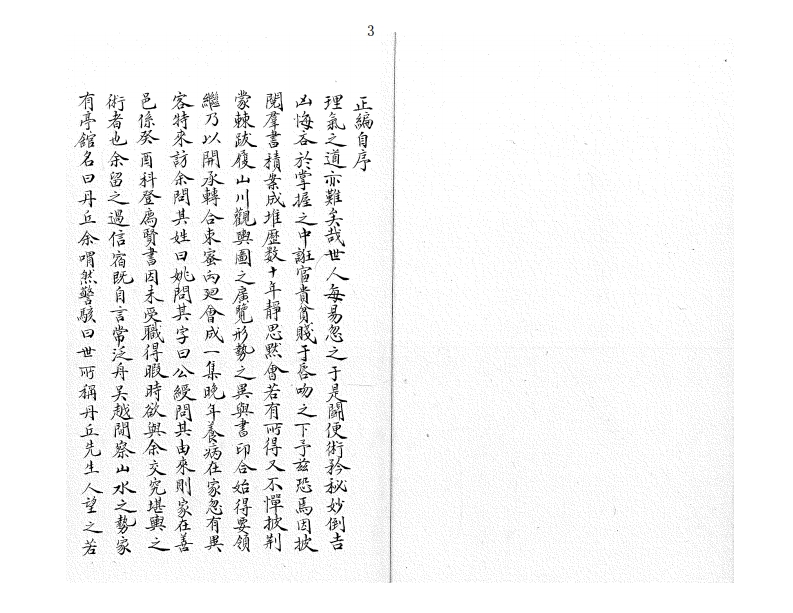 3
正編自序
理氣之道亦難矣哉世人每易忽之于是鬪便術矜秘妙倒吉
凶悔吝於掌握之中誑富貴貧賤于唇吻之下予兹恐焉因披
閱羣書積案成堆歷数十年靜思黙會若有所得又不憚披荆
蒙棘跋履山川觀輿圖之廣覽形勢之異與書印合始得要領
繼乃以開承轉合東蜜向廻會成一集晚年養病在家忽有異
客特來訪余問其姓曰姚問其字曰公綬問其由來則家在善
邑係癸酉科登薦賢書因未受職得暇時欲與余交究堪輿之
術者也余留之過信宿既自言常泛丹吴越間察山水之勢家
有亭館名曰丹丘余喟然警駭曰世所稱丹丘先生人望之若